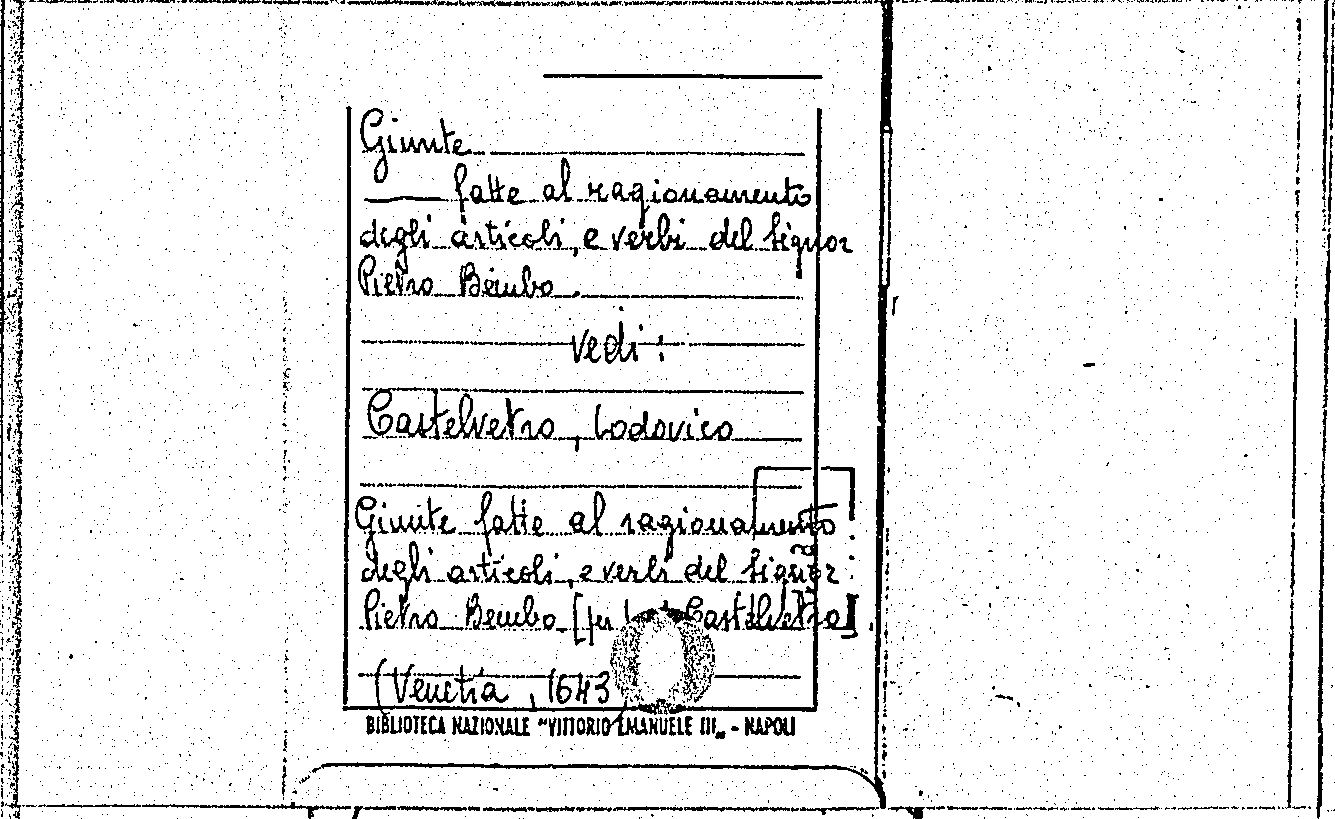 Giunte
fatte al ragionamento
degli articoli, e verbi del signor
Pietro Bembo.
vedi:
Castelvetro, Lodovico
Giunte fatte al ragionamento
degli articoli, e verbi del signor
Pietro Bembo [per Castelvetro].
(Venetia, 1643
BIBLIOTECA NAZIONALE "VITTORIO EMANUELE III„ - NAPOLI